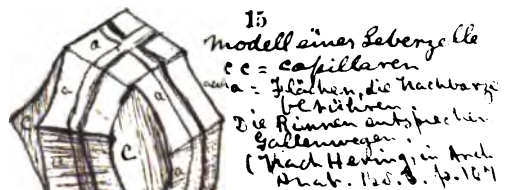 15
Modell einer Leberzelle
c c = capillaren
a = Flächen, die Nachbarze
berühren.
Die Rinnen entsprechen
Gallenwegen.
(Nach Hering, in Arch
Anat. Bd. p. 167
a
a
a
c
c
a
a